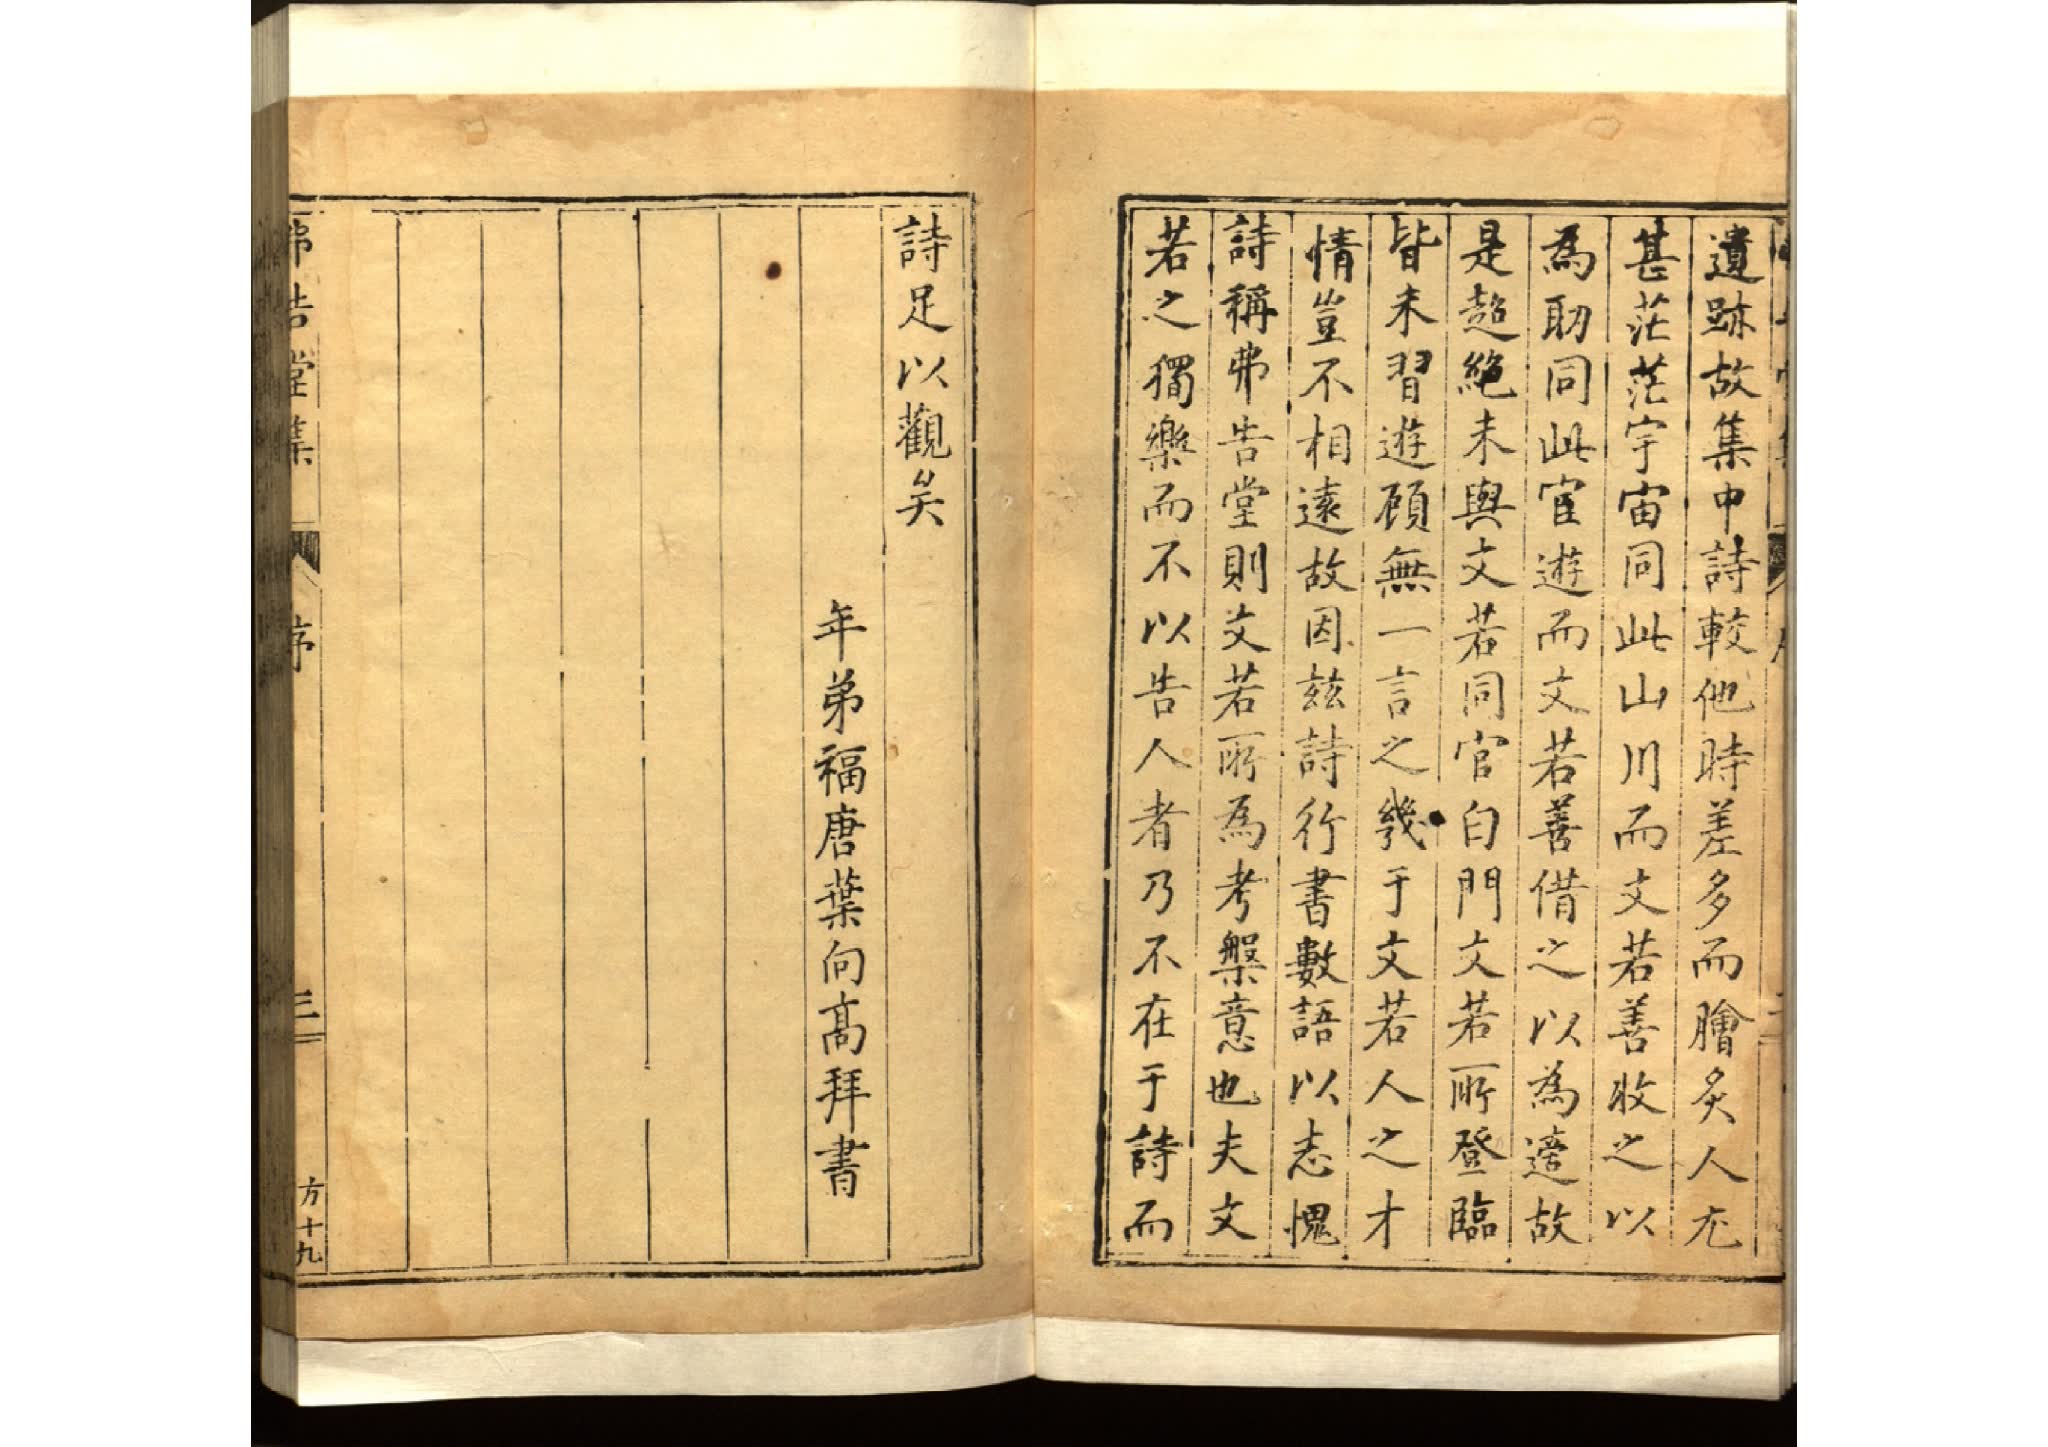 遺跡故集中詩較他時差多而膾炙人尤
甚茫茫宇宙同此山川而文若善收之以
為助同此宦遊而文若善借之以為適故
是超絶未與文若同官白門文若所登臨
皆未習遊顧無一言之幾于文若人之才
情豈不相遠故因兹詩行書數語以志愧
詩稱弗告堂則文若所為考槃意也夫文
若之獨樂而不以告人者乃不在于詩而
詩足以觀矣
年弟福唐葉向髙拜書
弗告堂集
序
三
方十九